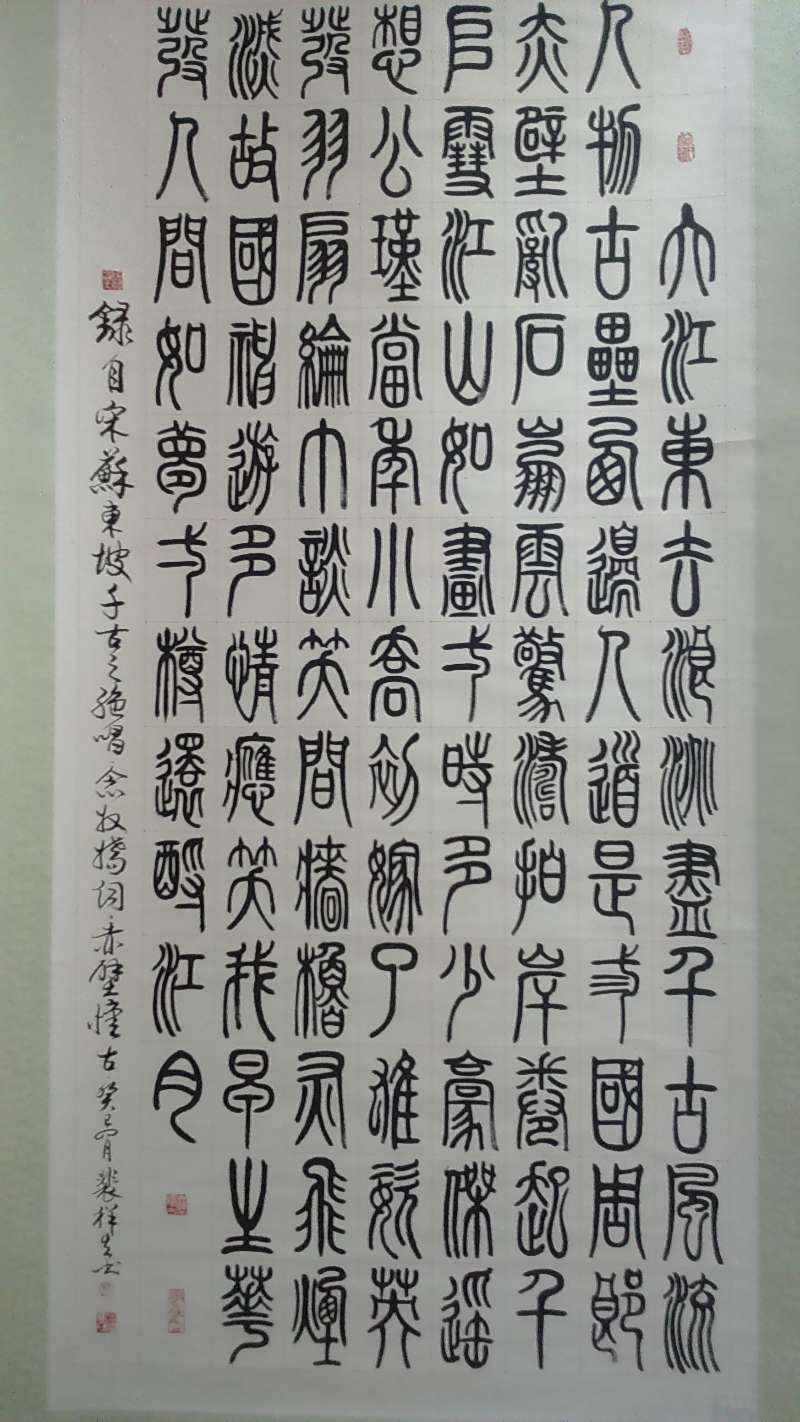 大江東去浪淘盡千古風流
人物古壘西邊人道是弎國周郎
赤壁亂石崩雲驚濤拍岸捲起千
堆雪江山如畫弌時多少豪傑遙
想公瑾當年小喬初嫁了雄姿英
發羽扇綸巾談笑間檣櫓灰飛煙
滅故國神遊多情應笑我早生華
發人間如夢弌樽還酹江月
録自宋蘇東坡千古之絶唱念奴嬌詞赤壁懷古癸巳月裴祥